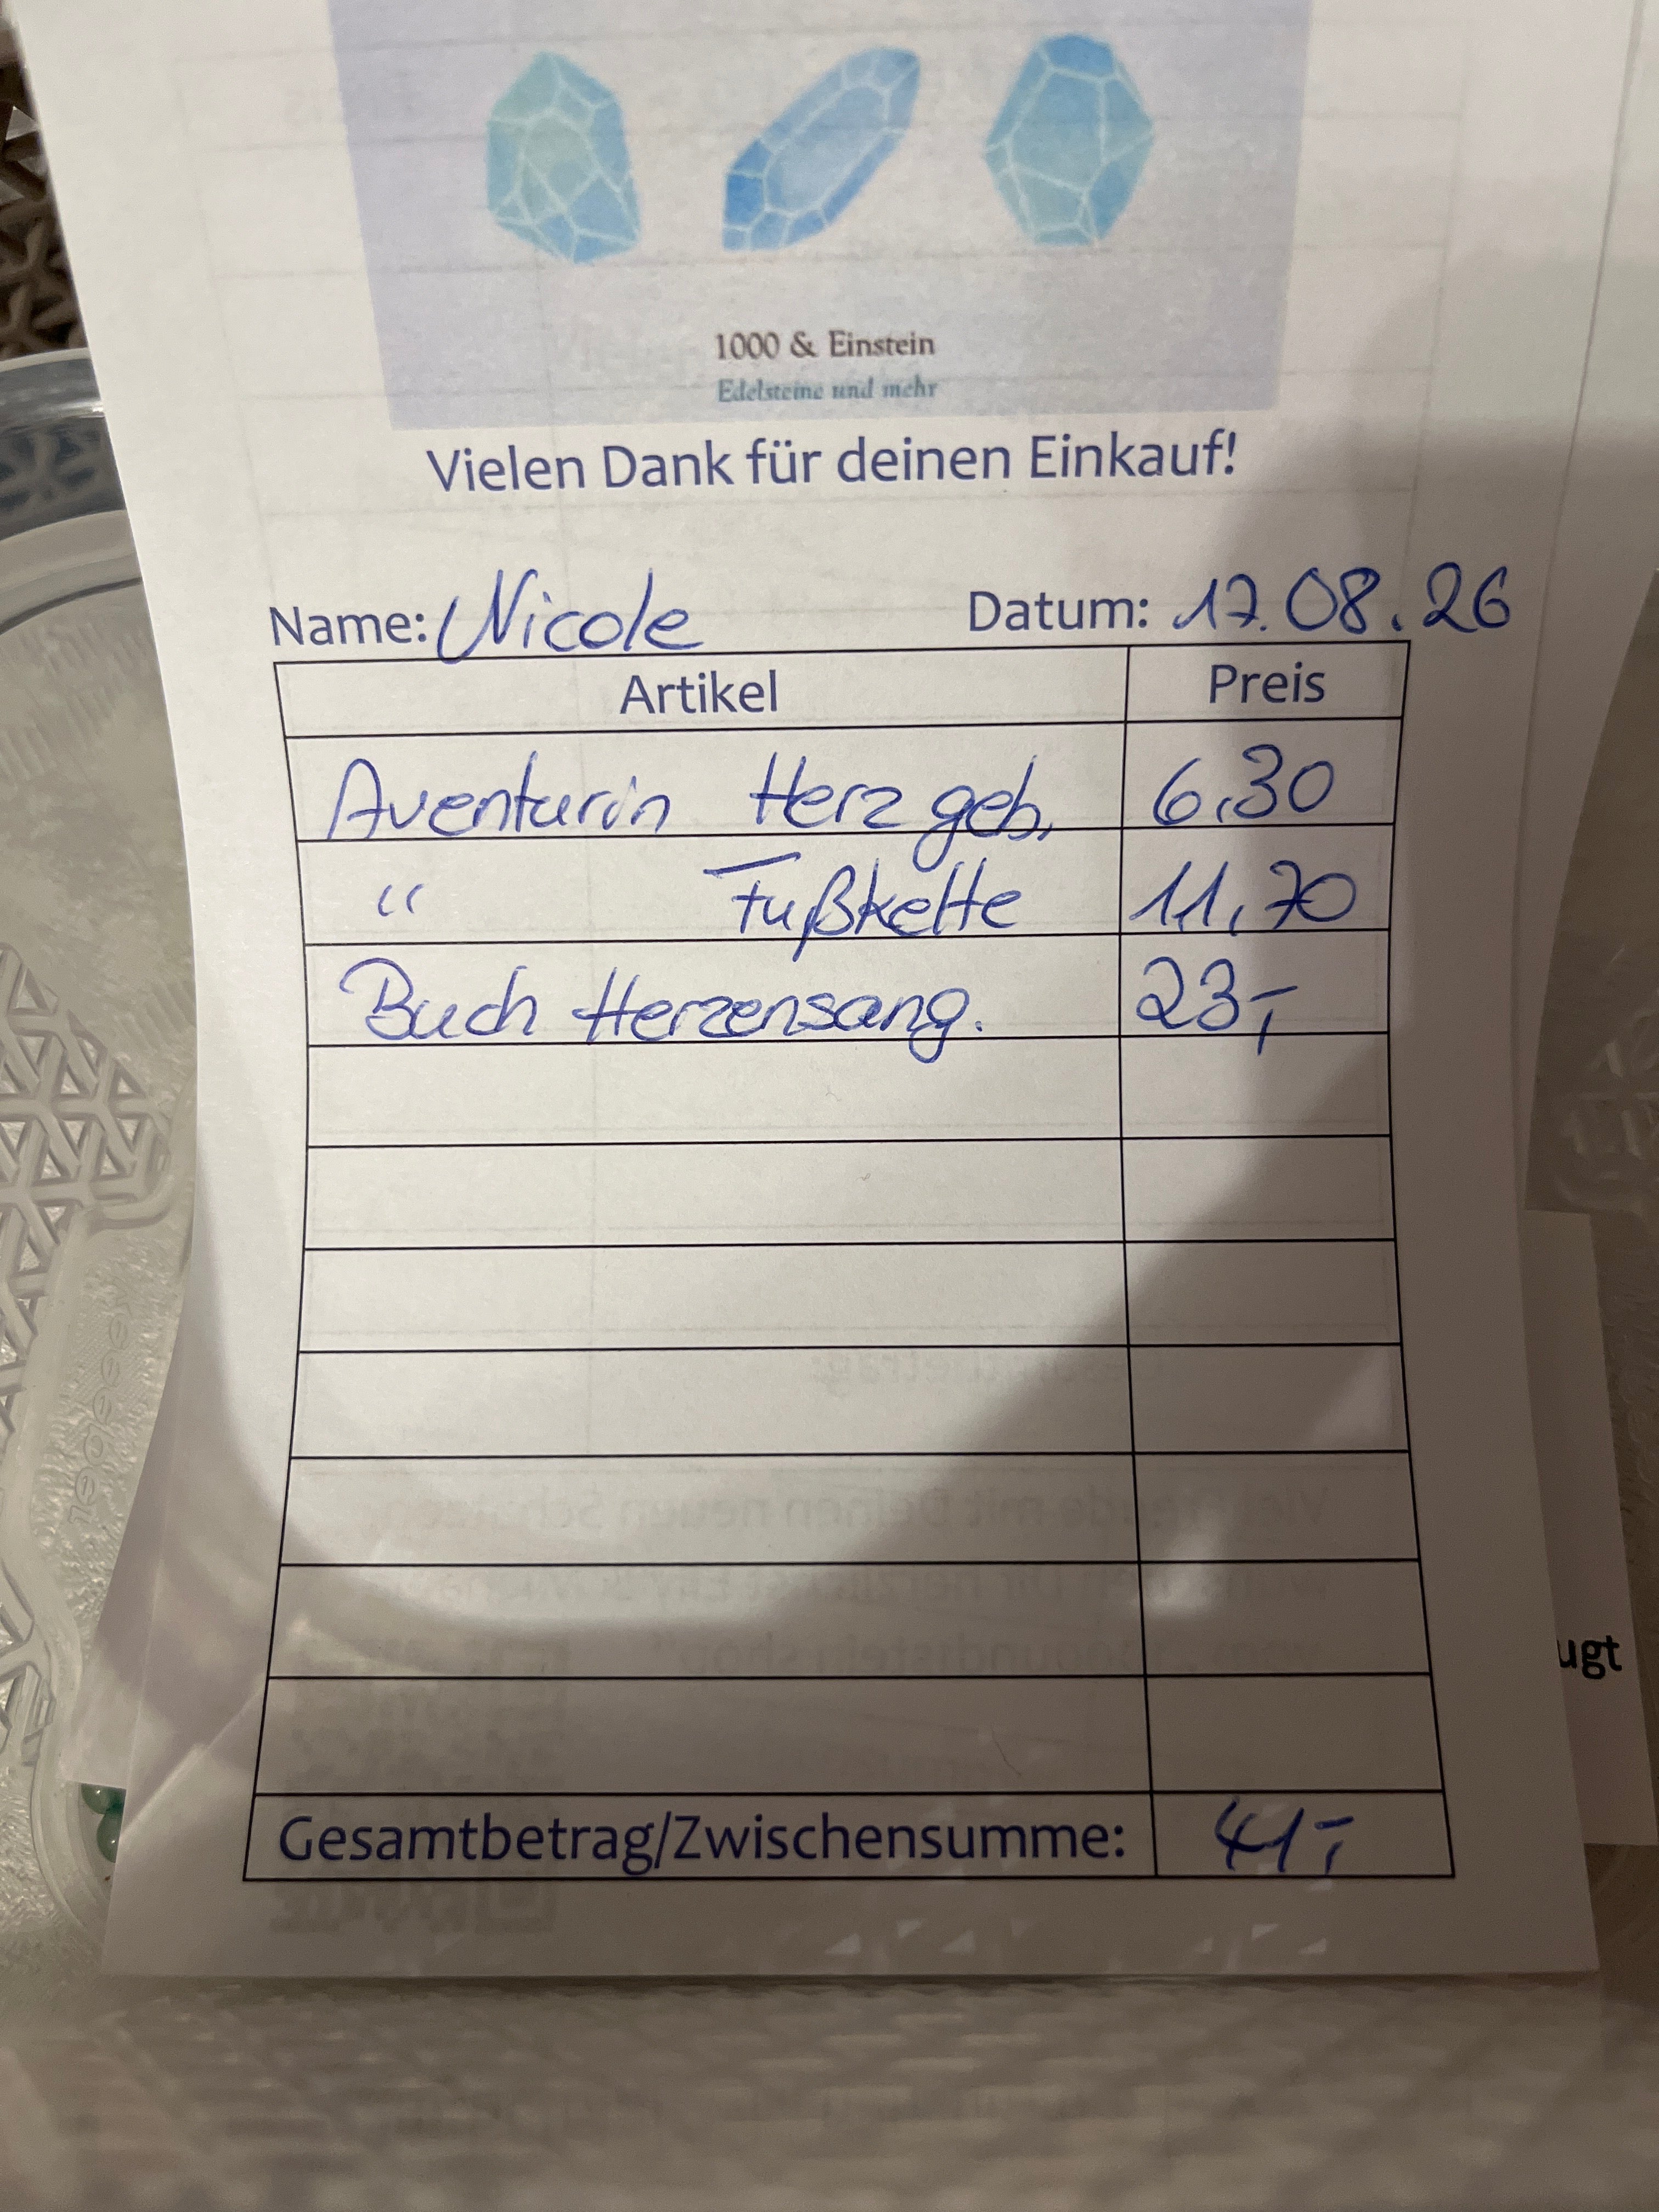 1000 & Einstein
Edelsteine und mehr
Vielen Dank für deinen Einkauf!
Name: Nicole Datum: 17.08.26
Artikel Preis
Aventurin Herz geb. 6,30
" Fußkette 11,70
Buch Herzensang. 23,-
Gesamtbetrag/Zwischensumme: 41,-
ugt